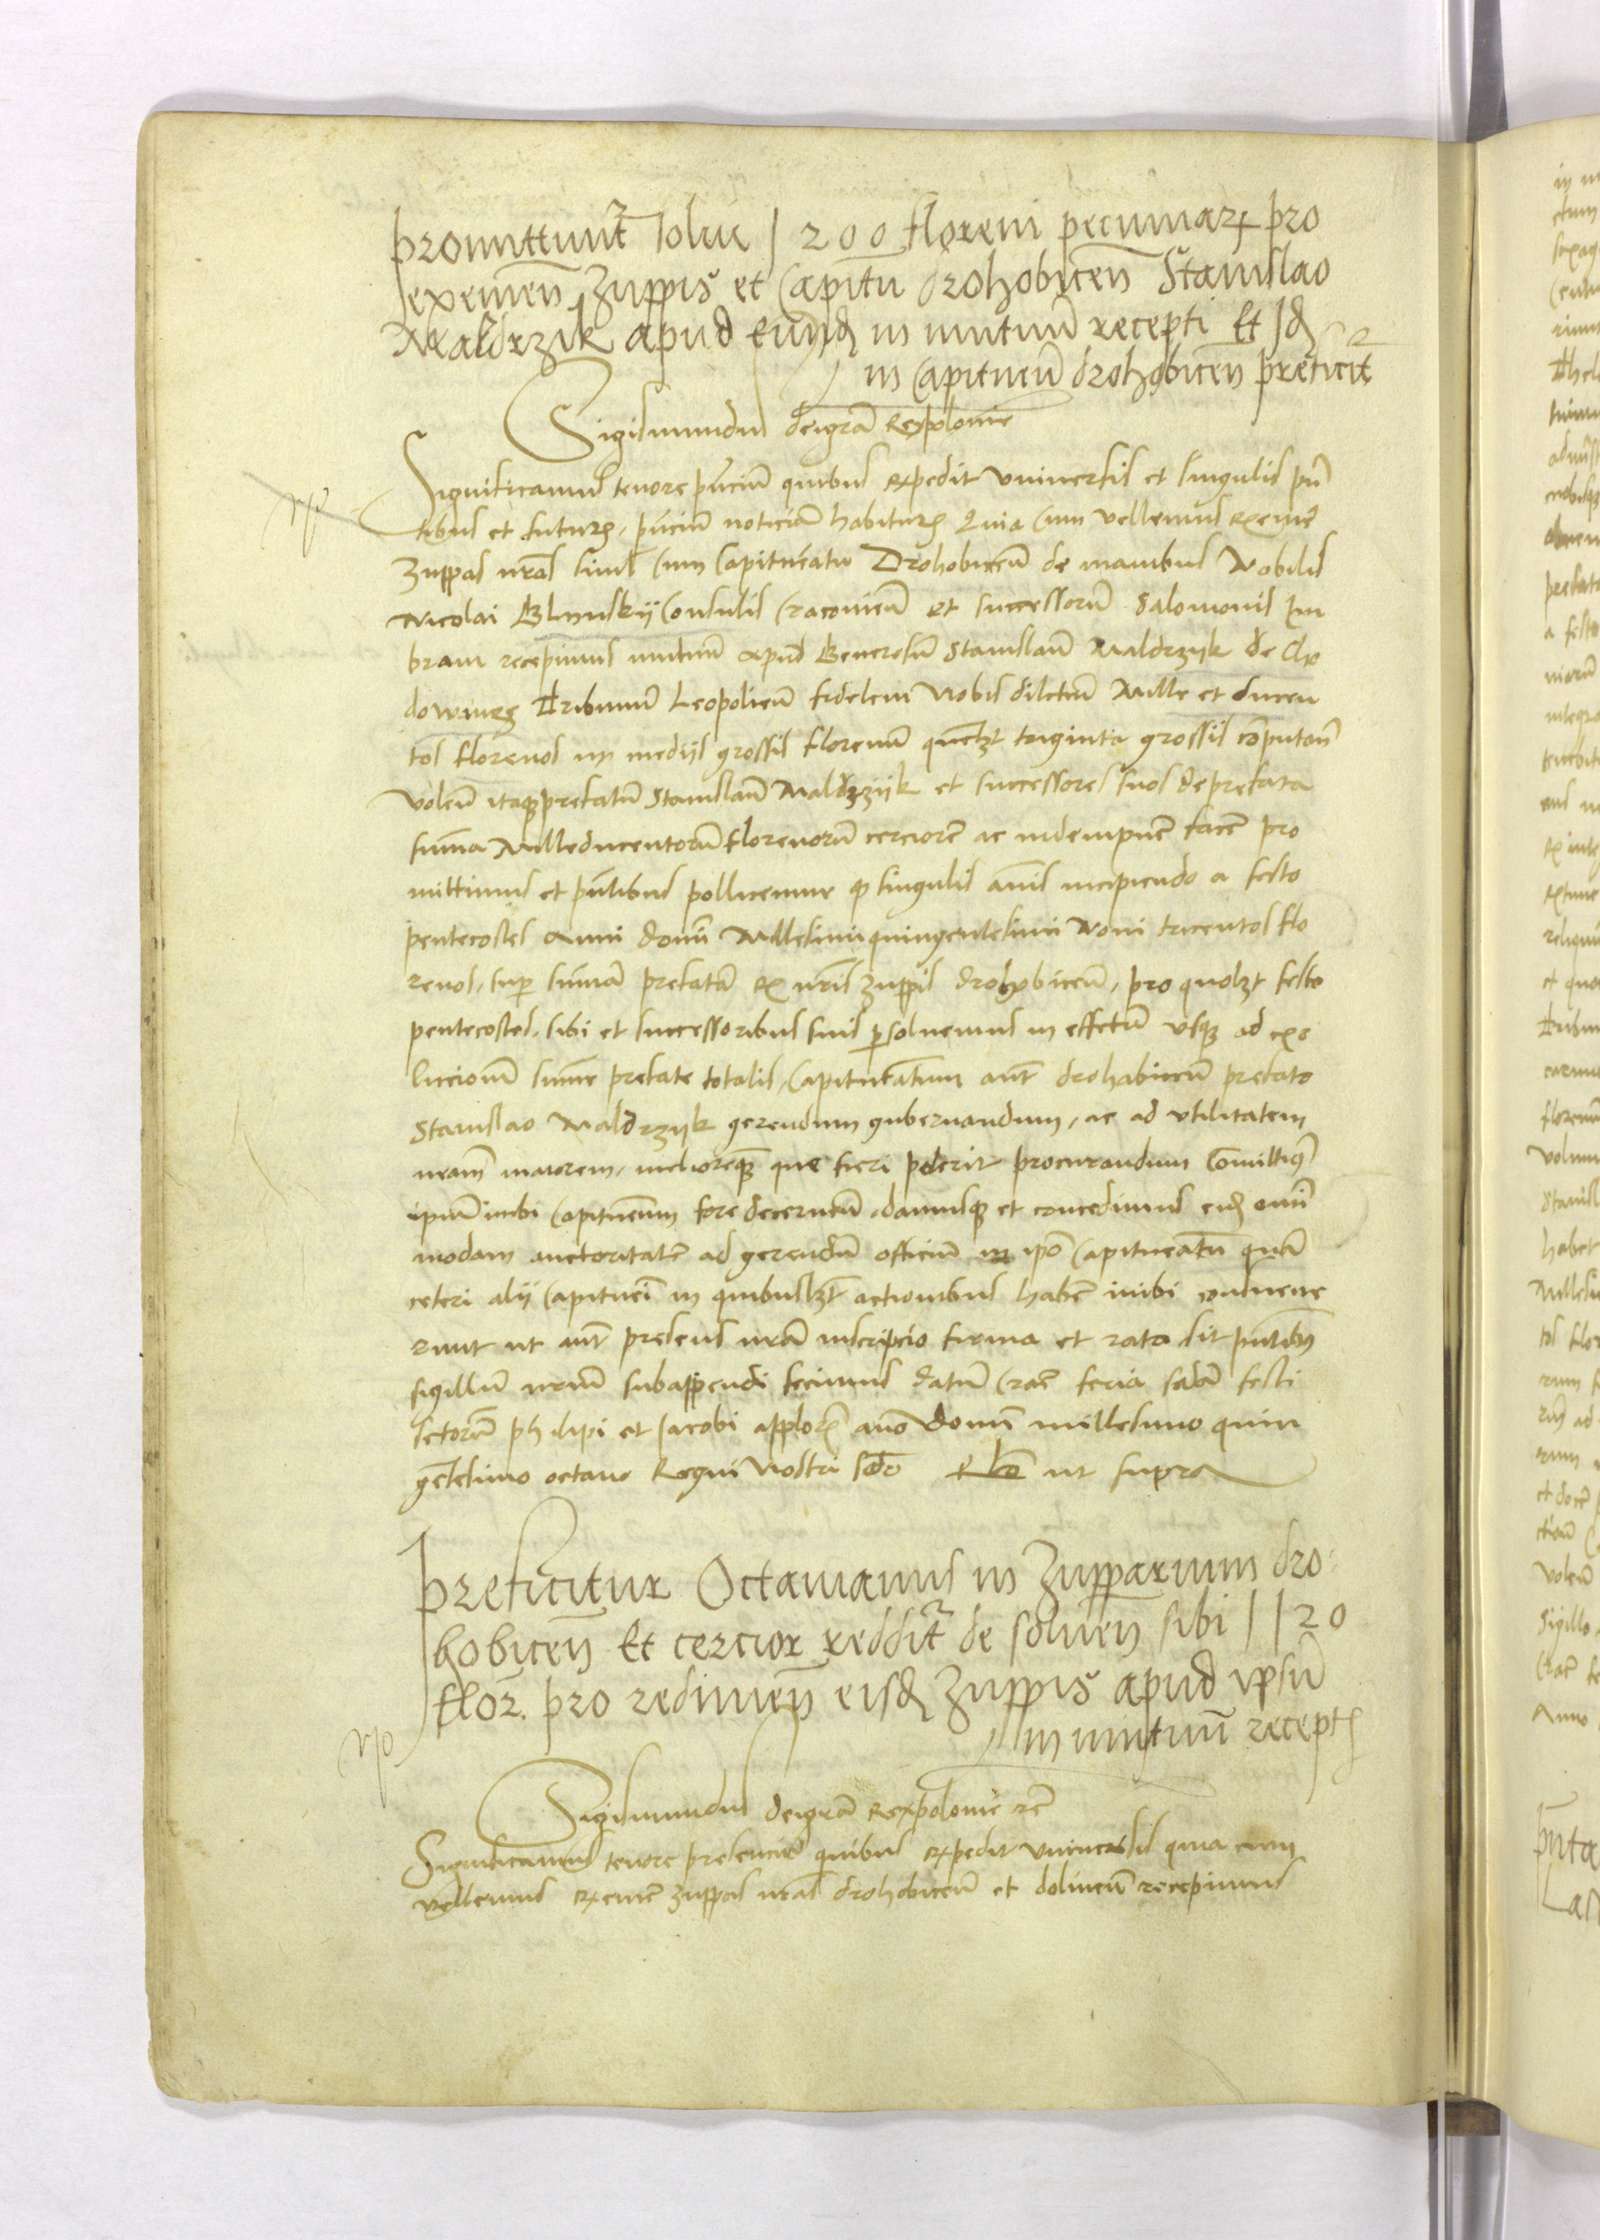 promittunt̃ solui 1200 floreni pecuniarꝝ pro
exemen̄ Zuppis et Capitn̄ drohobicen̄ Stanislao
Maldrzik apud eund in mutuū recepti Et Id
in Capitneū drohobicen̄ preficit̃
Sigismundus dei grā Rex polonie
Significamus tenore pn̄ciū quibus expedit vniuersis et singulis pn̄
tibus et futur, pn̄ciū noticiā habitur Quia Cum vellemus exeme
Zuppas nr̄as simul Cum Capitneatu Drohobicen̄ de manibus Nobilis
Nicolai Consulis Cracouien̄ et successorū Salomonis Im
bram recepimus mutuū apud Generosum Stanislaū Maldrzijk de Cho
dowincze Tribunū Leopolien̄ fidelem Nobis dilctū Mille et ducen
tos florenos in medijs grossis florenū quemlꝫt triginta grossis cōputan̄
volen̄ itaqꝫ prefatū Stanislaū Maldrzijk et successores suos de prefata
summa Mille ducentorū florenorū cerciorē ac indempnē facē pro
mittimus et pn̄tibus pollicemur qꝫ singulis annis incipiendo a festo
pentecostes Anni domī Millesimi quingentesimi Noni tricentos flo
renos, sup summā prefatā ex nr̄is Zuppis drohobicen̄, pro quolꝫt festo
pentecostes, sibi et successoribus suis psoluemus in effctū vsqꝫ ad exo
lucionē summe prefate totalis, Capitneatum aut̄ drohabicen̄ prefato
Stanislao Maldrzijk gerendum gubernandum, ac ad vtilitatem
nr̄am maiorem, melioremqꝫ que fieri poterit procurandum Comittimꝰ
ipsumqꝫ inibi Capitneum fore decernim̄ damusqꝫ et concedimus eid omī
modam auctoritatē ad gerendū officiū in ipō Capitneatu quā
ceteri alij Capitnei in quibuslꝫt actionibus habē inibi consueue
runt ut aut̄ presens nr̄a inscripcio firma et rata sit pn̄tibus
sigillum nr̄um subappendi fecimus datū Crac̄ feria scda festi
sctorū philipi et Jacobi applor anno domī millesimo quin
gētesimo octauo Regni Nostri scdo Rlō ut supra
preficitur Octauianus in Zupparium dro
hobicen̄ Et cercior reddit̃ de soluen̄ sibi 1120
flor. pro redimen̄ eisd Zuppis apud ipsū
in mutuū recept
Sigismundus dei grā Rex polonie rc̄
Significamus tenore presenciū quibus expedit vniuersis quia cum
vellemus exemē zuppas nr̄as drohobicen̄ et dolinen̄ recepimus